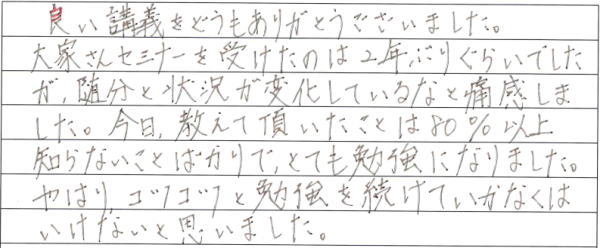 良い講義をどうもありがとうございました。
大家さんセミナーを受けたのは2年ぶりぐらいでした
が、随分と状況が変化しているなと痛感しま
した。今日、教えて頂いたことは80%以上
知らないことばかりで、とても勉強になりました。
やはり、コツコツと勉強を続けていかなくは
いけないと思いました。